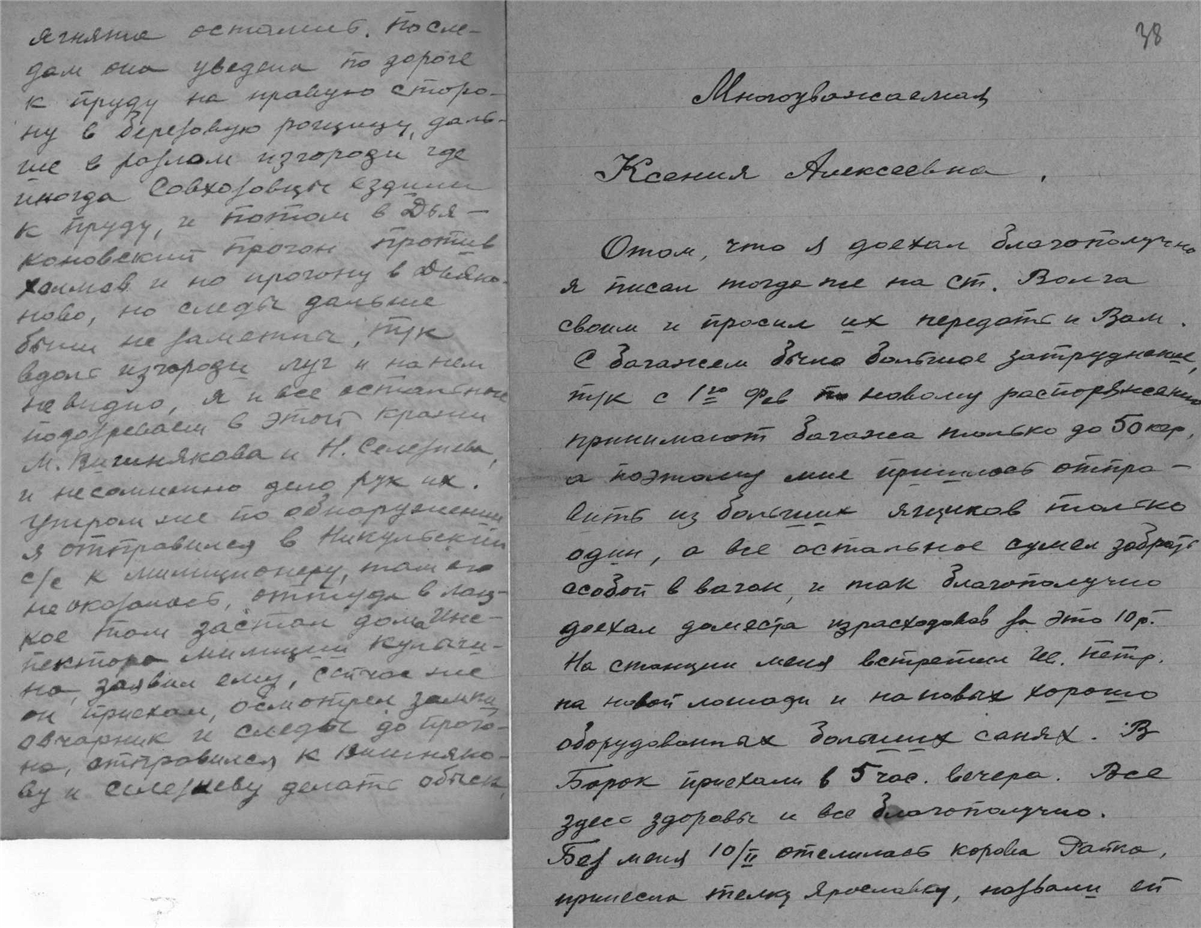 ягнята остались. По сле-
дам она уведена по дороге
к пруду на правую сторо-
ну в березовую рощицу, даль-
ше в разлом изгороди где
иногда Совхозовцы ездили
к пруду, и потом в Дья-
коновский прогон против
холмов и по прогону в Дьяко-
ново, но следы дальше
были не заметны, т/к
вдоль изгороди луг и на нем
не видно, я и все остальные
подозреваем в этой кражи
М. Вишнякова и Н. Селезнева,
и несомненно дело рук их.
Утром же по обнаружении
я отправился в Никульский
с/с к милиционеру, там его
не оказалось, оттуда в Лац-
кое там застал дома Инс-
пектора милиции Кулачи-
на, заявил ему, сейчас же
он приехал, осмотрел замки,
овчарник и следы до прого-
на, отправился к Вишняко-
ву и Селезневу делать обыск,
38
Многоуважаемая
Ксения Алексеевна.
Отом, что я доехал благополучно
я писал тогда же на ст. Волга
своим и просил их передать и Вам.
С багажем было большое затруднение,
т/к с 1го Фев по новому распоряжению
принимают багажа только до 50 кгр,
а поэтому мне пришлось отпра-
вить из больших ящиков только
один, а все остальное сумел забрать
ссобой в вагон, и так благополучно
доехал доместа израсходовав за это 10 р.
На станции меня встретил Ив. Петр.
на новой лошади и на новых хорошо
оборудованных больших санях. В
Борок приехали в 5 час. вечера. Все
здесь здоровы и все благополучно.
Без меня 10/II отелилась корова Галка,
принесла телку Ярославку, назвали ей